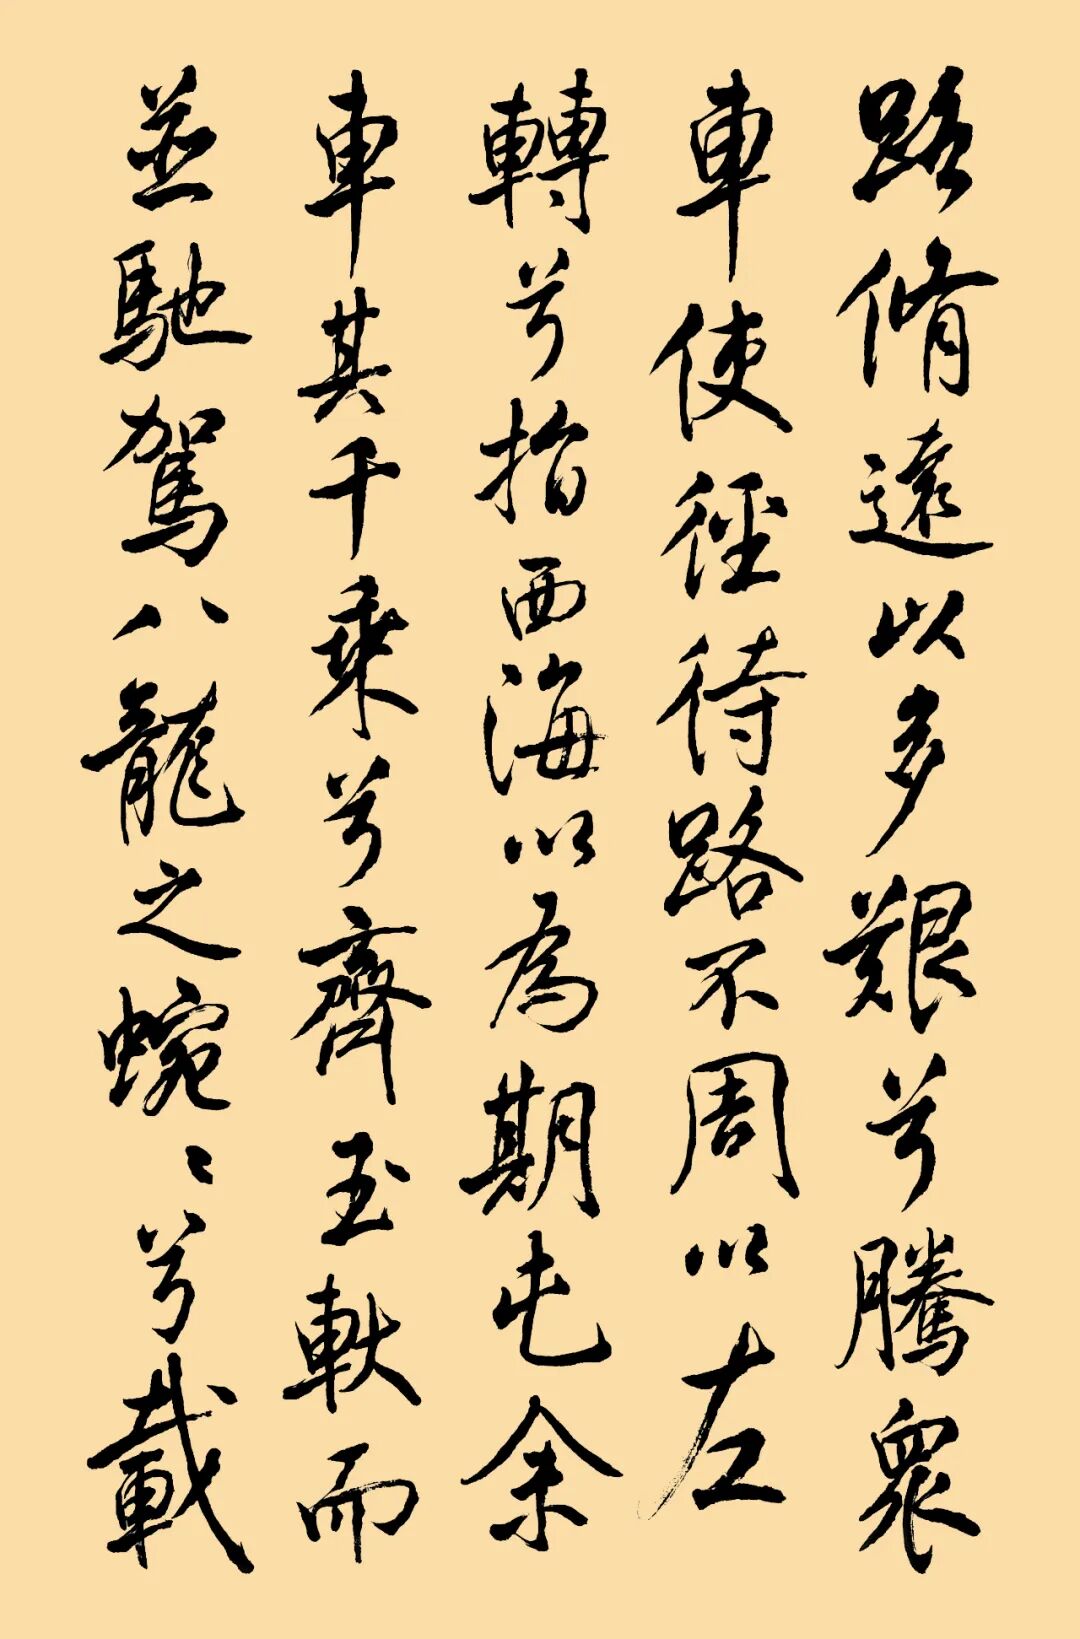 路脩遠以多艱兮騰衆
車使徑待路不周以左
轉兮指西海以為期屯余
車其千乘兮齊玉軑而
並馳駕八龍之蜿〻兮載